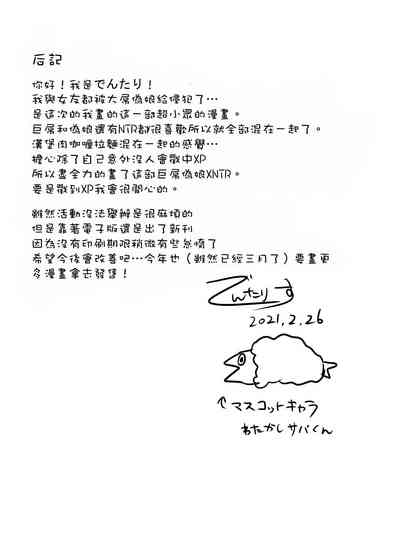 后記
你好！我是でんたり！
我與女友都被大屌偽娘給侵犯了…
是這次的我畫的這一部超小眾的漫畫。
巨屌和偽娘還有NTR都很喜歡所以就全部混在一起了。
漢堡肉咖喱拉麵混在一起的感覺…
擔心除了自己意外沒人會戳中XP
所以盡全力的畫了這部巨屌偽娘XNTR。
要是戳到XP我會很開心的。
雖然活動沒法舉辦是很麻煩的
但是靠著電子版還是出了新刊
因為沒有印刷期限稍微有些怠惰了
希望今後會改善吧…今年也（雖然已經三月了）要畫更
多漫畫拿去發售！
でんたり
2021.2.26
↑マスコットキャラ
わたかしサバくん